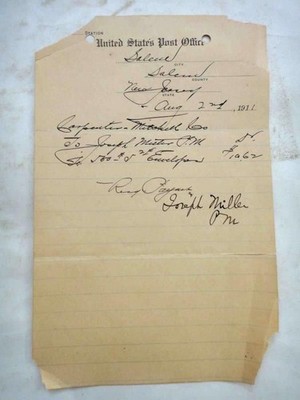 STATION
United States Post Office
Salem
CITY
Salem
COUNTY
New Jersey
STATE
Aug 2nd, 1911.
Carpenter Mitchell Co
To Joseph Miller P.M Dr.
To 500 # 8 2¢ Envelopes $10.62
Recd Payment
Joseph Miller
P M